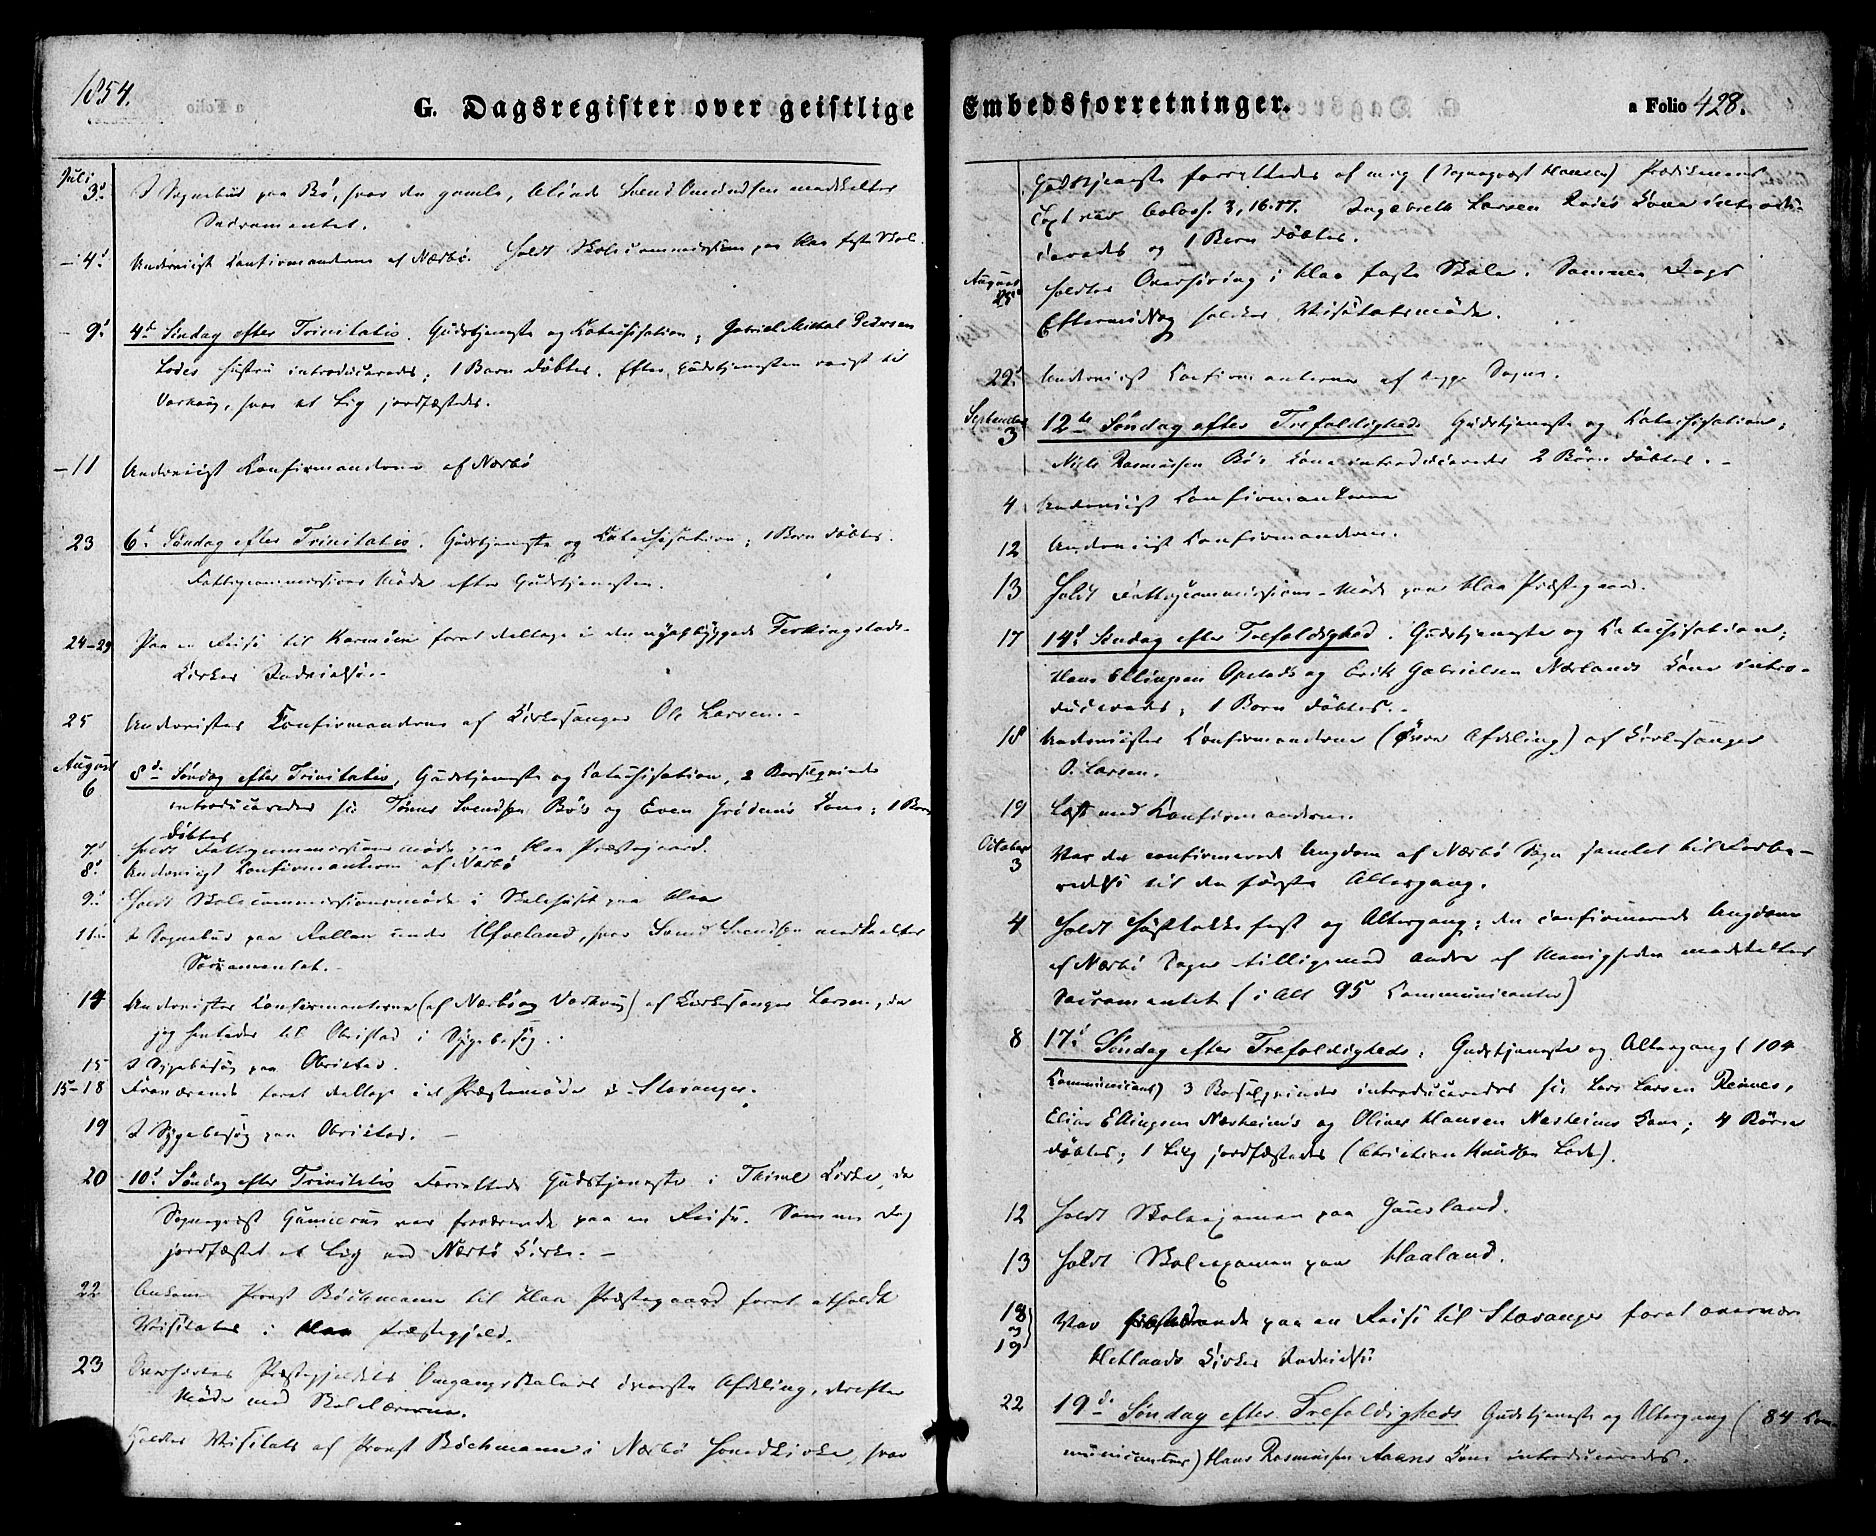 1854.
G. Dagsregister over geistlige
Juli
3d I Sognebud paa Bö, hvor den gamle, blinde Svend Omundsen meddeeltes
Sacramentet.
– 4d Underviist Confirmanderne af Nærbö. Holdt Skolecommission paa Haa faste Skole.
– 9d 4d Söndag efter Trinitatis. Gudstjeneste og Katechisation; Gabriel Michal Pedersen
Lodes Hustru introduceredes; 1 Barn döbtes. Efter Gudstjenesten reist til
Varhoug, hvor et Lig jordfæstedes.
– 11 Underviist Confirmanderne af Nærbö
23 6d Söndag efter Trinitatis. Gudstjeneste og Katechisation; 1 Barn döbtes.
Fattigcommissions Möde efter Gudstjenesten.
24–29 Paa en Reise til Karmöen foret deltage i den nyopbyggede Ferkingstads-
Kirkes Indvielse.-
25 Undervistes Confirmanderne af Kirkesanger Ole Larsen.-
August
6 8d Söndag efter Trinitatis, Gudstjeneste og Katechisation, 2 Barselqvinder
introduceredes is: Tönnes Svendsen Bö's og Even Grödems Kone; 1 Barn
döbtes
7d Holdt Fattigcommissionsmöde paa Haa Præstegaard.
8d Underviist Confirmanterne af Nærbö
9d Holdt Skolecommissionsmöde i Skolehuset paa Haa
11d I Sognebud paa under Ulfveland, hvor Svend Svendsen meddeeltes
Sacramentet.-
14 Undervistes Confirmanterne (af Nærbö og Varhoug) af Kirkesanger Larsen, da
jeg hentedes til Obristad i Sygebesög.
15 I Sygebesög paa Obristad.
15–18 Fraværende foret deltage i et Præstemöde i Stavanger.
19 I Sygebesög paa Obristad. –
20 10d Söndag efter Trinitatis Forrettede Gudstjeneste i Thime Kirke, da
Sognepræst Gunnerus var fraværende paa en Reise. Samme Dag
jordfæstet et Lig ved Nærbö Kirke. –
22 Ankom Provst Böchmann til Haa Præstegaard foret afholdt
Visitats i Haa Præstegjeld.
23 Overhörtes Præstegjeldets Omgangsskolers överste Afdeling, derefter
Möde med Skolelærerne.
Holdtes Visitats af Provst Böchmann i Nærbö Hovedkirke, hvor
Embedsforretninger.
a Folio 428.
Gudstjeneste forrettedes af mig (Sognepræst Hansen) Prædikenens
Text var Coloss. 3, 16.17. Ingebreth Larsen Kone introdu-
ceredes og 1 Barn döbtes.
August
25 holdtes Overhöring i Haa faste Skole. Sammen Dags
Eftermiddag holdtes Visitatsmöde.
29d Underviist Confirmanterne af begge Sogne.
September
3 12te Söndag efter Trefoldighed. Gudstjeneste og Katechisation;
Niels Rasmussen Bö's Kone introduceredes 2 Börn döbtes. –
4 Underviist Confirmanterne
12 Underviist Confirmanderne.
13 Holdt Fattigcommissions-Möde paa Haa Præstegaard.
17 14d Söndag efter Trefoldighed. Gudstjeneste og Katechisation;
Hans Ellingsen Opstads og Erik Gabrielsen Nærlands Kone intro-
duceredes; 1 Barn döbtes. –
18 Undervistes Confirmanderne (Övre Afdeling) af Kirkesanger
O. Larsen.
19 Læst med Confirmanderne.
October
3 Var den confirmerede Ungdom af Nærbö Sogn samlet til Forbe-
redelse til den förste Altergang.
4 Holdt Hösttakkefest og Altergang; den confirmerede Ungdom
af Nærbö Sogn tilligemed Andre af Menigheden meddeeltes
Sacramentet (i Alt 95 Communicanter)
8 17d Söndag efter Trefoldigheds; Gudstjeneste og Altergang (104
Communicant) 3 Barselqvinder introduceredes is: Lars Larsen Reimes,
Elias Ellingsen Næsheims og Oliver Hansen Næsheims Kone; 4 Börn
döbtes; 1 Lig jordfæstedes (Christian Knudsen Lode).
12 Holdt Skoleexamen paa Gausland.
13 Holdt Skoleexamen paa Haaland.
18
og
19 Var fraværende paa en Reise til Stavanger foret overvære
Hetlands Kirkes Indvielse
22 19d Söndag efter Trefoldigheds Gudstjeneste og Altergang (84 Com-
municanter) Hans Rasmussen Aanes Kone introduceredes.